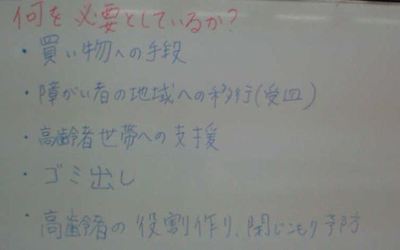 何を必要としているか?
・買い物への手段
・障がい者の地域への移行(受皿)
・高齢者世帯への支援
・ゴミ出し
・高齢者の役割作り、閉じこもり予防